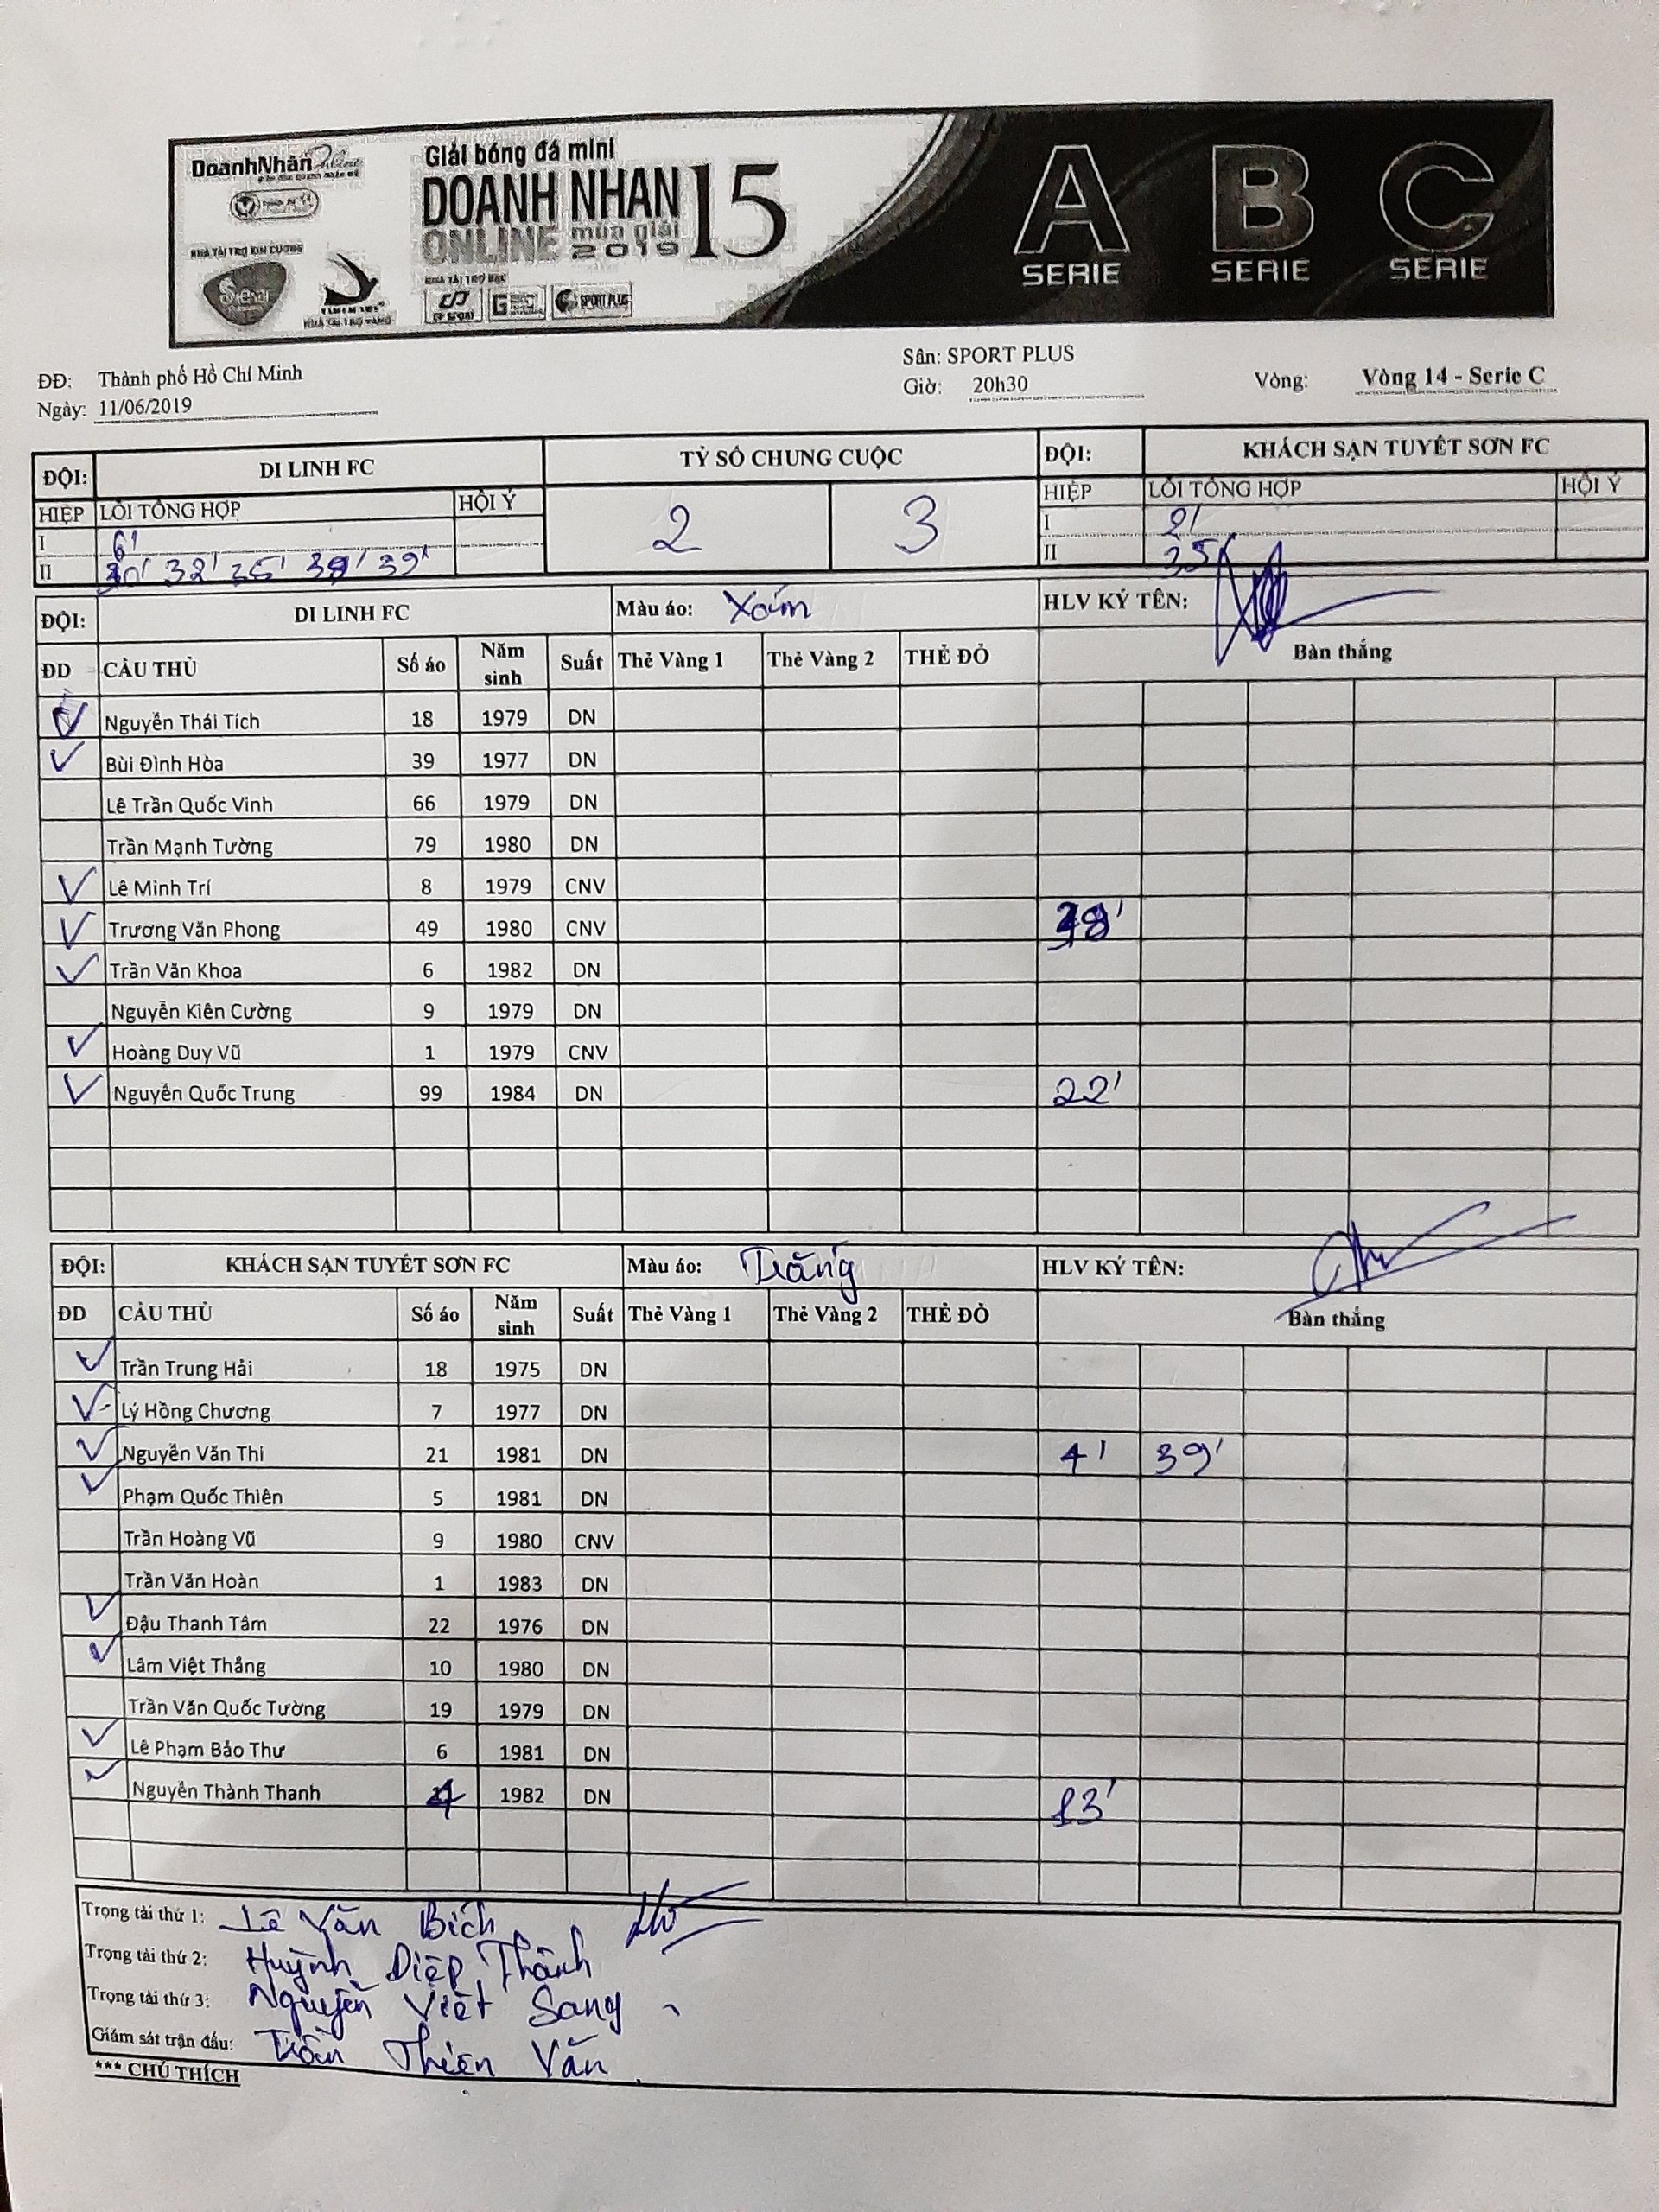 DoanhNhân Online
Giải bóng đá mini
DOANH NHAN 15
ONLINE mùa giải 2019
NHÀ TÀI TRỢ KIM CƯƠNG
NHÀ TÀI TRỢ VÀNG
NHÀ TÀI TRỢ BẠC
SPORT PLUS
A SERIE B SERIE C SERIE
ĐĐ: Thành phố Hồ Chí Minh
Ngày: 11/06/2019
Sân: SPORT PLUS
Giờ: 20h30
Vòng: Vòng 14 - Serie C
ĐỘI: DI LINH FC TỶ SỐ CHUNG CUỘC ĐỘI: KHÁCH SẠN TUYẾT SƠN FC
HIỆP LỖI TỔNG HỢP HỘI Ý 2 3 HIỆP LỖI TỔNG HỢP HỘI Ý
I 6' I 2'
II 32' 35' 39' II 35'
ĐỘI: DI LINH FC Màu áo: Xám HLV KÝ TÊN:
ĐD CẦU THỦ Số áo Năm sinh Suất Thẻ Vàng 1 Thẻ Vàng 2 THẺ ĐỎ Bàn thắng
Nguyễn Thái Tích 18 1979 DN
Bùi Đình Hòa 39 1977 DN
Lê Trần Quốc Vinh 66 1979 DN
Trần Mạnh Tường 79 1980 DN
Lê Minh Trí 8 1979 CNV
Trương Văn Phong 49 1980 CNV
Trần Văn Khoa 6 1982 DN
Nguyễn Kiên Cường 9 1979 DN
Hoàng Duy Vũ 1 1979 CNV
Nguyễn Quốc Trung 99 1984 DN 22'
ĐỘI: KHÁCH SẠN TUYẾT SƠN FC Màu áo: Trắng HLV KÝ TÊN:
ĐD CẦU THỦ Số áo Năm sinh Suất Thẻ Vàng 1 Thẻ Vàng 2 THẺ ĐỎ Bàn thắng
Trần Trung Hải 18 1975 DN
Lý Hồng Chương 7 1977 DN
Nguyễn Văn Thi 21 1981 DN 4' 39'
Phạm Quốc Thiên 5 1981 DN
Trần Hoàng Vũ 9 1980 CNV
Trần Văn Hoàn 1 1983 DN
Đậu Thanh Tâm 22 1976 DN
Lâm Việt Thắng 10 1980 DN
Trần Văn Quốc Tường 19 1979 DN
Lê Phạm Bảo Thư 6 1981 DN
Nguyễn Thành Thanh 4 1982 DN 13'
Trọng tài thứ 1: Lê Văn Bích
Trọng tài thứ 2: Huỳnh Diệp Thành
Trọng tài thứ 3: Nguyễn Việt Sang
Giám sát trận đấu: Trần Thiện Văn
*** CHÚ THÍCH